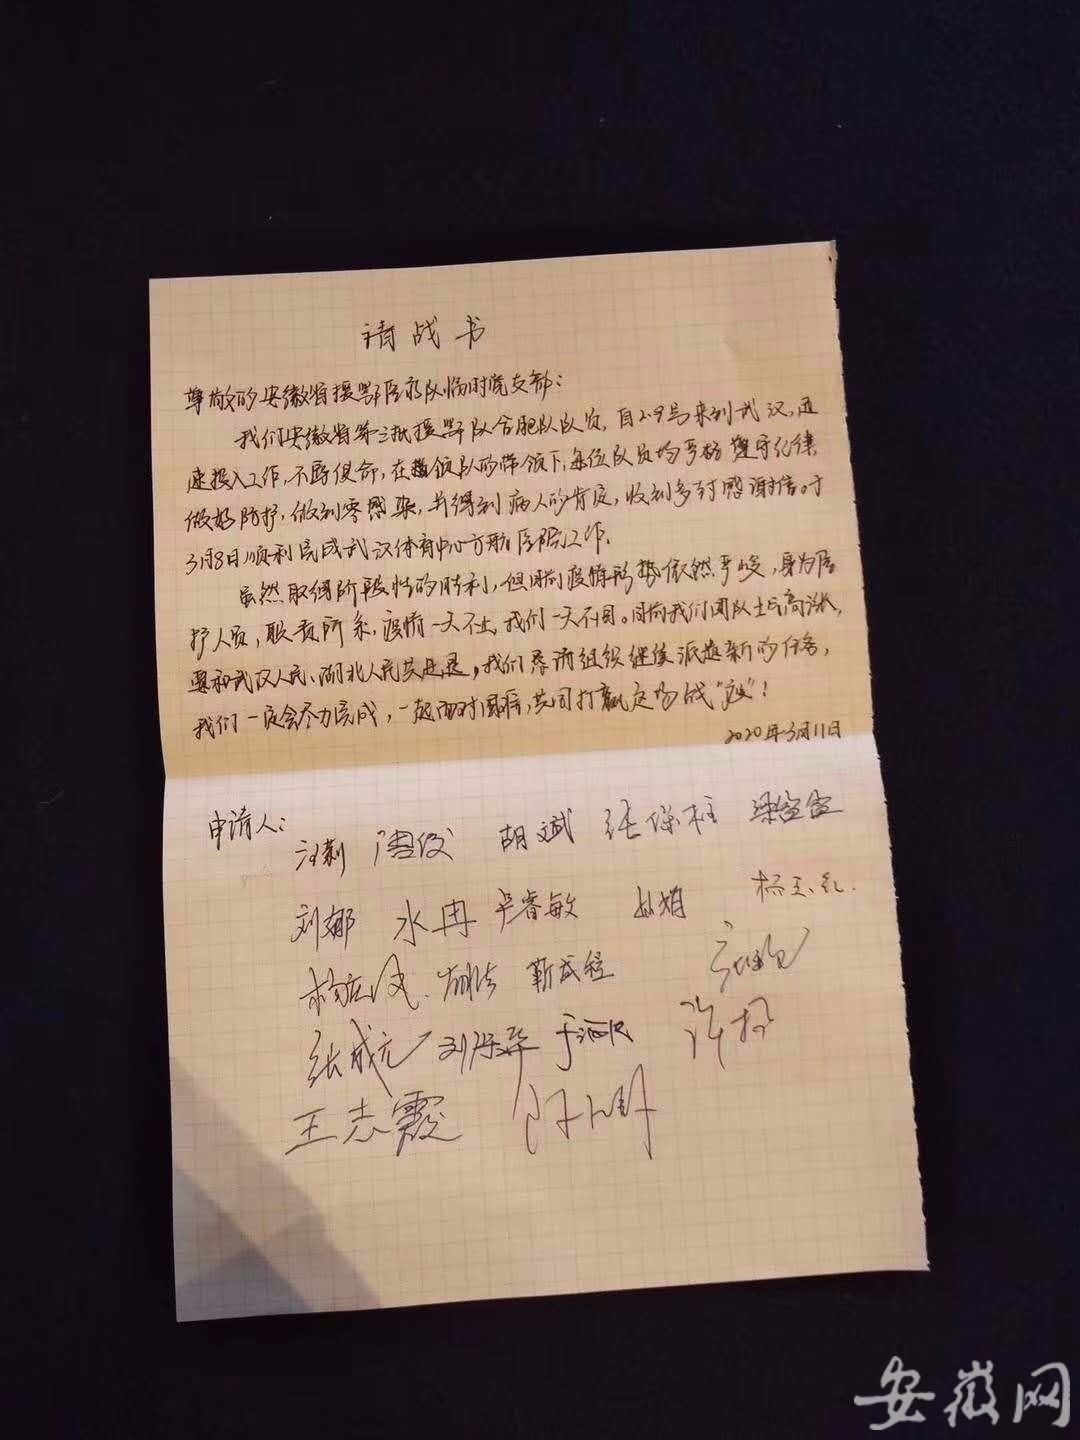 请战书
尊敬的安徽省援鄂医疗队临时党支部:
我们安徽省第三批援鄂队合肥队队员,自2.9号来到武汉,迅
速投入工作,不辱使命,在领队的带领下,每位队员均严格遵守纪律
做好防护,做到零感染,并得到病人的肯定,收到多封感谢信。于
3月8日顺利完成武汉体育中心方舱医院工作。
虽然取得阶段性的胜利,但目前疫情形势依然严峻,身为医
护人员,职责所系,疫情一天不止,我们一天不回。目前我们团队士气高涨,
要和武汉人民、湖北人民共进退,我们恳请组织继续派遣新的任务,
我们一定会尽力完成,一起面对困难,共同打赢这场战“疫”!
2020年3月11日
申请人:
汪莉 周俊 胡斌 张保柱
刘娜 水冉 卢睿敏
靳成程
张成元 于
王志霞
安徽网